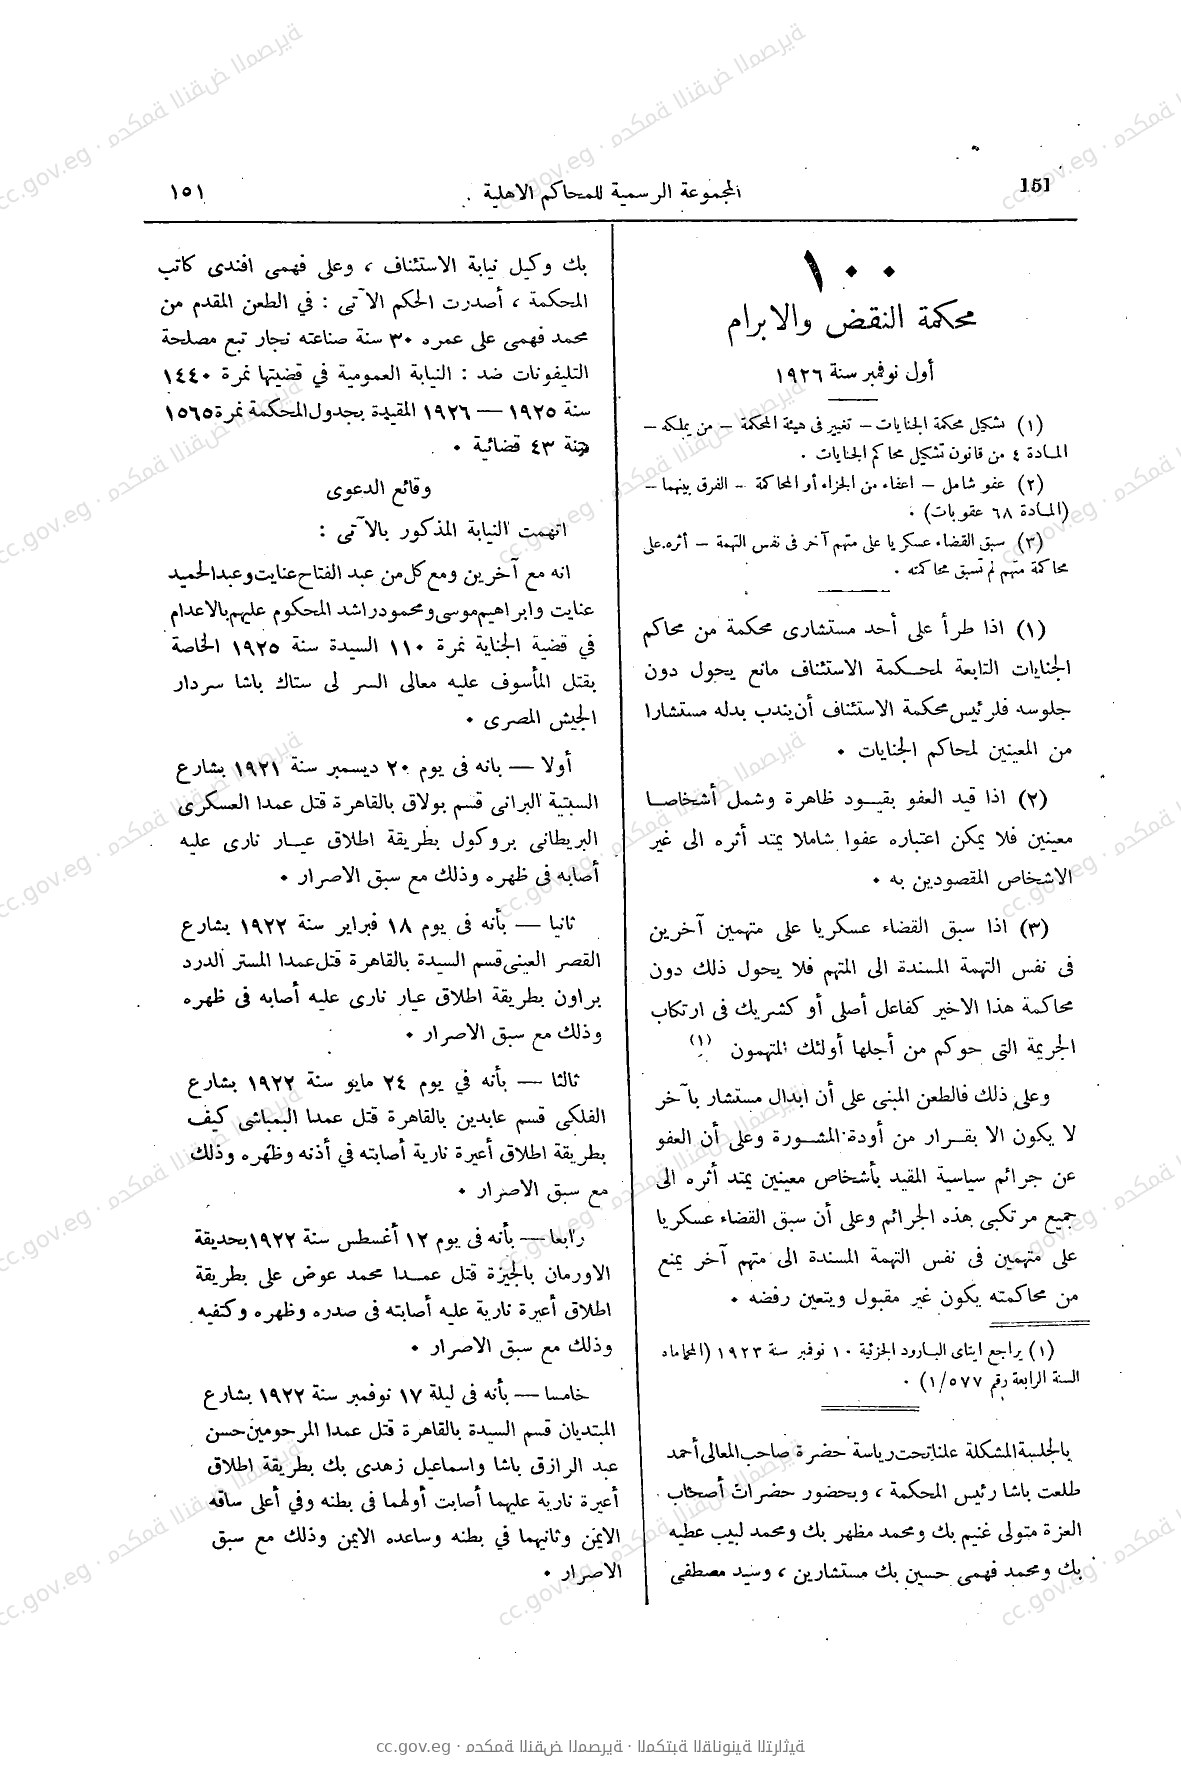 151
المجموعة الرسمية للمحاكم الاهلية
١٥١
١٠٠
محكمة النقض والابرام
أول نوفمبر سنة ١٩٢٦
(١) تشكيل محكمة الجنايات – تغيير فى هيئة المحكمة – من يملكه –
المادة ٤ من قانون تشكيل محاكم الجنايات .
(٢) عفو شامل – اعفاء من الجزاء أو المحاكمة – الفرق بينهما –
(المادة ٦٨ عقوبات) .
(٣) سبق القضاء عسكريا على متهم آخر فى نفس التهمة – أثره على
محاكمة متهم لم تسبق محاكمته .
(١) اذا طرأ على أحد مستشارى محكمة من محاكم
الجنايات التابعة لمحكمة الاستئناف مانع يحول دون
جلوسه فلرئيس محكمة الاستئناف أن يندب بدله مستشارا
من المعينين لمحاكم الجنايات .
(٢) اذا قيد العفو بقيود ظاهرة وشمل أشخاصا
معينين فلا يمكن اعتباره عفوا شاملا يمتد أثره الى غير
الاشخاص المقصودين به .
(٣) اذا سبق القضاء عسكريا على متهمين آخرين
فى نفس التهمة المسندة الى المتهم فلا يحول ذلك دون
محاكمة هذا الاخير كفاعل أصلى أو كشريك فى ارتكاب
الجريمة التى حوكم من أجلها أولئك المتهمون (١)
وعلى ذلك فالطعن المبنى على أن ابدال مستشار بآخر
لا يكون الا بقرار من أودة المشورة وعلى أن العفو
عن جرائم سياسية المقيد بأشخاص معينين يمتد أثره الى
جميع مرتكبى هذه الجرائم وعلى أن سبق القضاء عسكريا
على متهمين فى نفس التهمة المسندة الى متهم آخر يمنع
من محاكمته يكون غير مقبول ويتعين رفضه .
(١) يراجع ايتاى البارود الجزئية ١٠ نوفمبر سنة ١٩٢٣ (المحاماه
السنة الرابعة رقم ١/٥٧٧) .
بالجلسة المشكلة علنا تحت رياسة حضرة صاحب المعالى أحمد
طلعت باشا رئيس المحكمة ، وبحضور حضرات أصحاب
العزة متولى غنيم بك ومحمد مظهر بك ومحمد لبيب عطيه
بك ومحمد فهمى حسين بك مستشارين ، وسيد مصطفى
بك وكيل نيابة الاستئناف ، وعلى فهمى افندى كاتب
المحكمة ، أصدرت الحكم الآتى : في الطعن المقدم من
محمد فهمى على عمره ٣٠ سنة صناعته نجار تبع مصلحة
التليفونات ضد : النيابة العمومية في قضيتها نمرة ١٤٤٠
سنة ١٩٢٥ — ١٩٢٦ المقيدة بجدول المحكمة نمرة ١٥٦٥
سنة ٤٣ قضائية .
وقائع الدعوى
اتهمت النيابة المذكور بالآتى :
انه مع آخرين ومع كل من عبد الفتاح عنايت وعبد الحميد
عنايت وابراهيم موسى ومحمود راشد المحكوم عليهم بالاعدام
في قضية الجناية نمرة ١١٠ السيدة سنة ١٩٢٥ الخاصة
بقتل المأسوف عليه معالى السر لى ستاك باشا سردار
الجيش المصرى .
أولا — بانه فى يوم ٢٠ ديسمبر سنة ١٩٢١ بشارع
السبتية البرانى قسم بولاق بالقاهرة قتل عمدا العسكرى
البريطانى بروكول بطريقة اطلاق عيار نارى عليه
أصابه فى ظهره وذلك مع سبق الاصرار .
ثانيا — بأنه فى يوم ١٨ فبراير سنة ١٩٢٢ بشارع
القصر العينى قسم السيدة بالقاهرة قتل عمدا المستر الدرد
براون بطريقة اطلاق عيار نارى عليه أصابه فى ظهره
وذلك مع سبق الاصرار .
ثالثا — بأنه في يوم ٢٤ مايو سنة ١٩٢٢ بشارع
الفلكى قسم عابدين بالقاهرة قتل عمدا البمباشى كيف
بطريقة اطلاق أعيرة نارية أصابته في أذنه وظهره وذلك
مع سبق الاصرار .
رابعا — بأنه فى يوم ١٢ أغسطس سنة ١٩٢٢ بحديقة
الاورمان بالجيزة قتل عمدا محمد عوض على بطريقة
اطلاق أعيرة نارية عليه أصابته فى صدره وظهره وكتفيه
وذلك مع سبق الاصرار .
خامسا — بأنه فى ليلة ١٧ نوفمبر سنة ١٩٢٢ بشارع
المبتديان قسم السيدة بالقاهرة قتل عمدا المرحومين حسن
عبد الرازق باشا واسماعيل زهدى بك بطريقة اطلاق
أعيرة نارية عليهما أصابت أولهما فى بطنه وفي أعلى ساقه
الايمن وثانيهما في بطنه وساعده الايمن وذلك مع سبق
الاصرار .
cc.gov.eg · محكمة النقض المصرية · المكتبة القانونية التراثية